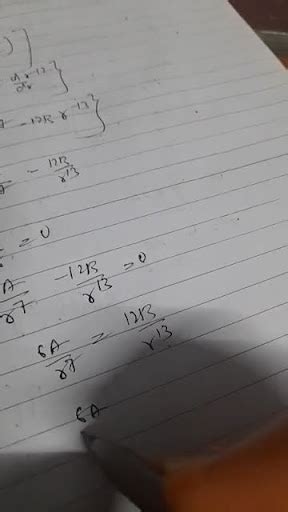 )]
dr⁻¹² }
dr
- 12B r⁻¹³ }
- 12B
r¹³
= 0
A
r7
- 12B
r¹³
= 0
6A
r7
= 12B
r¹³
6A